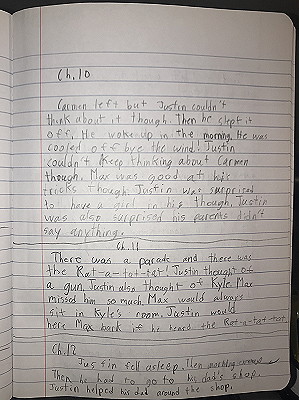 Ch.10
Carmen left but Justin couldn't
think about it though. Then he slept it
off. He woke up in the morning. He was
cooled off bye the wind! Justin
couldn't keep thinking about Carmen
though. Max was good at his
tricks though. Justin was surprised
to have a girl in his though. Justin
was also surprised his parents didn't
say anything.
Ch.11
There was a parade and there was
the Rat-a-tot-tat! Justin thought of
a gun. Justin also thought of Kyle. Max
missed him so much. Max would always
sit in Kyle's room. Justin would
here Max bark if he heard the Rat-a-tat-tat.
Ch.12
Justin fell asleep. Then morning
Then he had to go to his dad's shop.
Justin helped his dad around the shop.